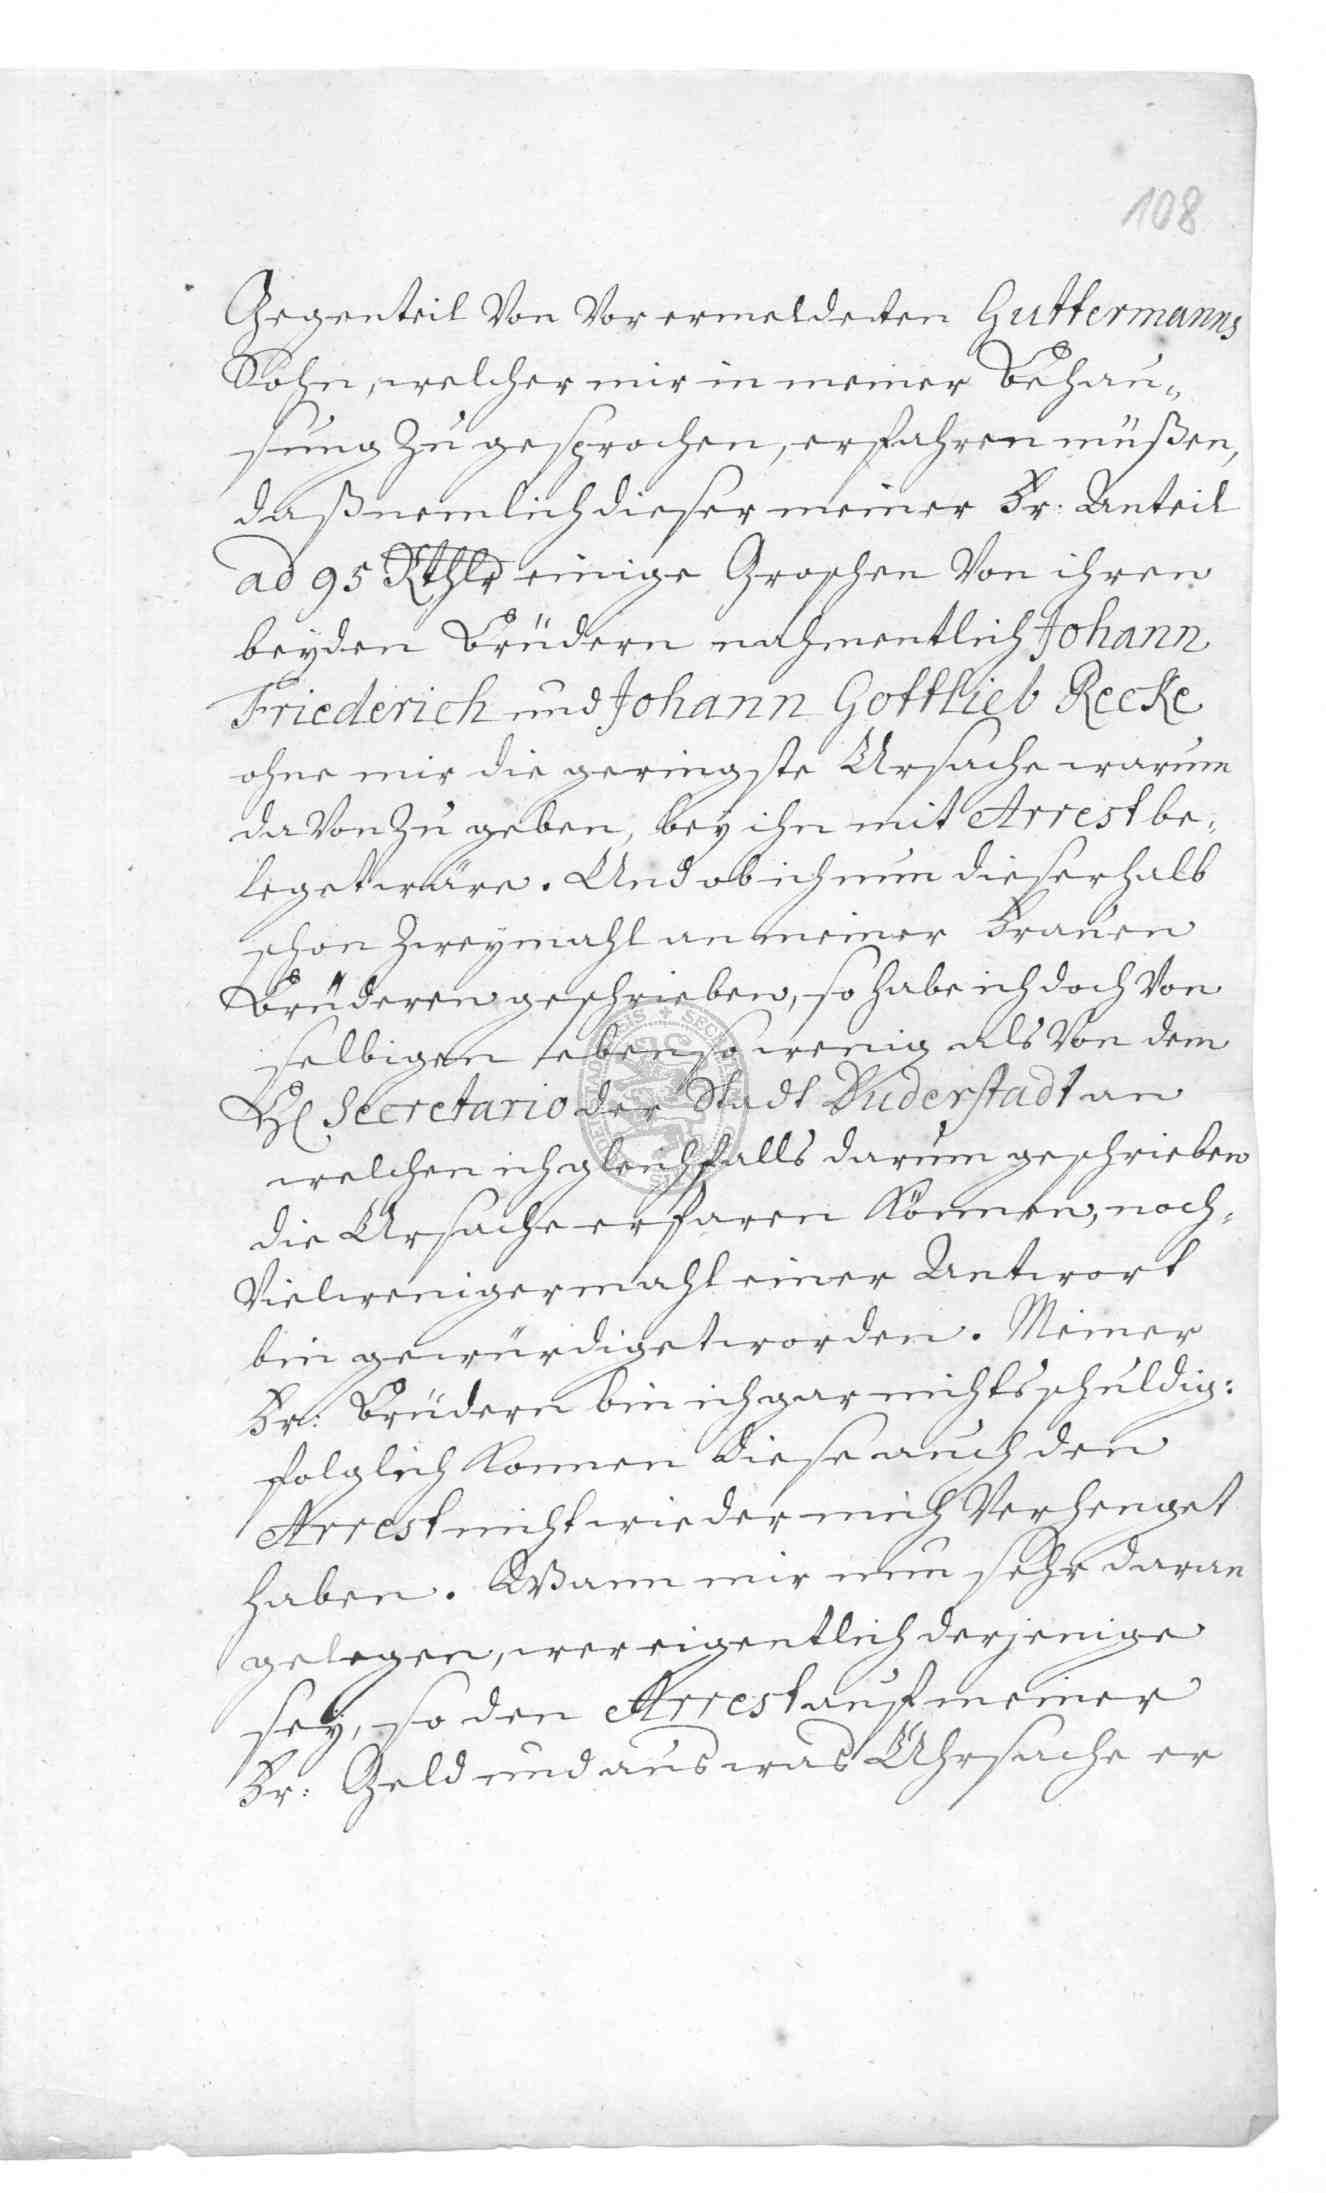 108
Gegenteil von vor ermeldeten Guttermanns
Sohn, welcher mir in meiner Behau„
sung zu gesprochen, erfahren müßen,
daß nemlich dieser meiner Fr: Anteil
ad 95 Rthlr einige Groschen von ihren
beyden Brüdern nahmentlich Johann
Friederich und Johann Gottlieb Recke
ohne mir die geringste Ursache warum
davon zu geben, bey ihn mit Arrest be„
leget wäre. Und ob ich nun dieserhalb
schon zweymahl an meiner Frauen
Brüderen geschrieben, so habe ich doch von
selbigen eben so wenig als von dem
H Secretario der Stadt Duderstadt an
welchen ich gleichfalls darum geschrieben
die Ursache erfaren können, noch„
vielweniger mahl einer Antwort
bin gewürdiget worden. Meiner
Fr: Brüdern bin ich gar nichts schuldig:
folglich konnen diese auch den
Arrest nicht wieder mich verhenget
haben. Wann mir nun sehr daran
gelegen, wer eigentlich derjenige
sey, so den Arrest auf meiner
Fr: Geld und aus was Uhrsache er